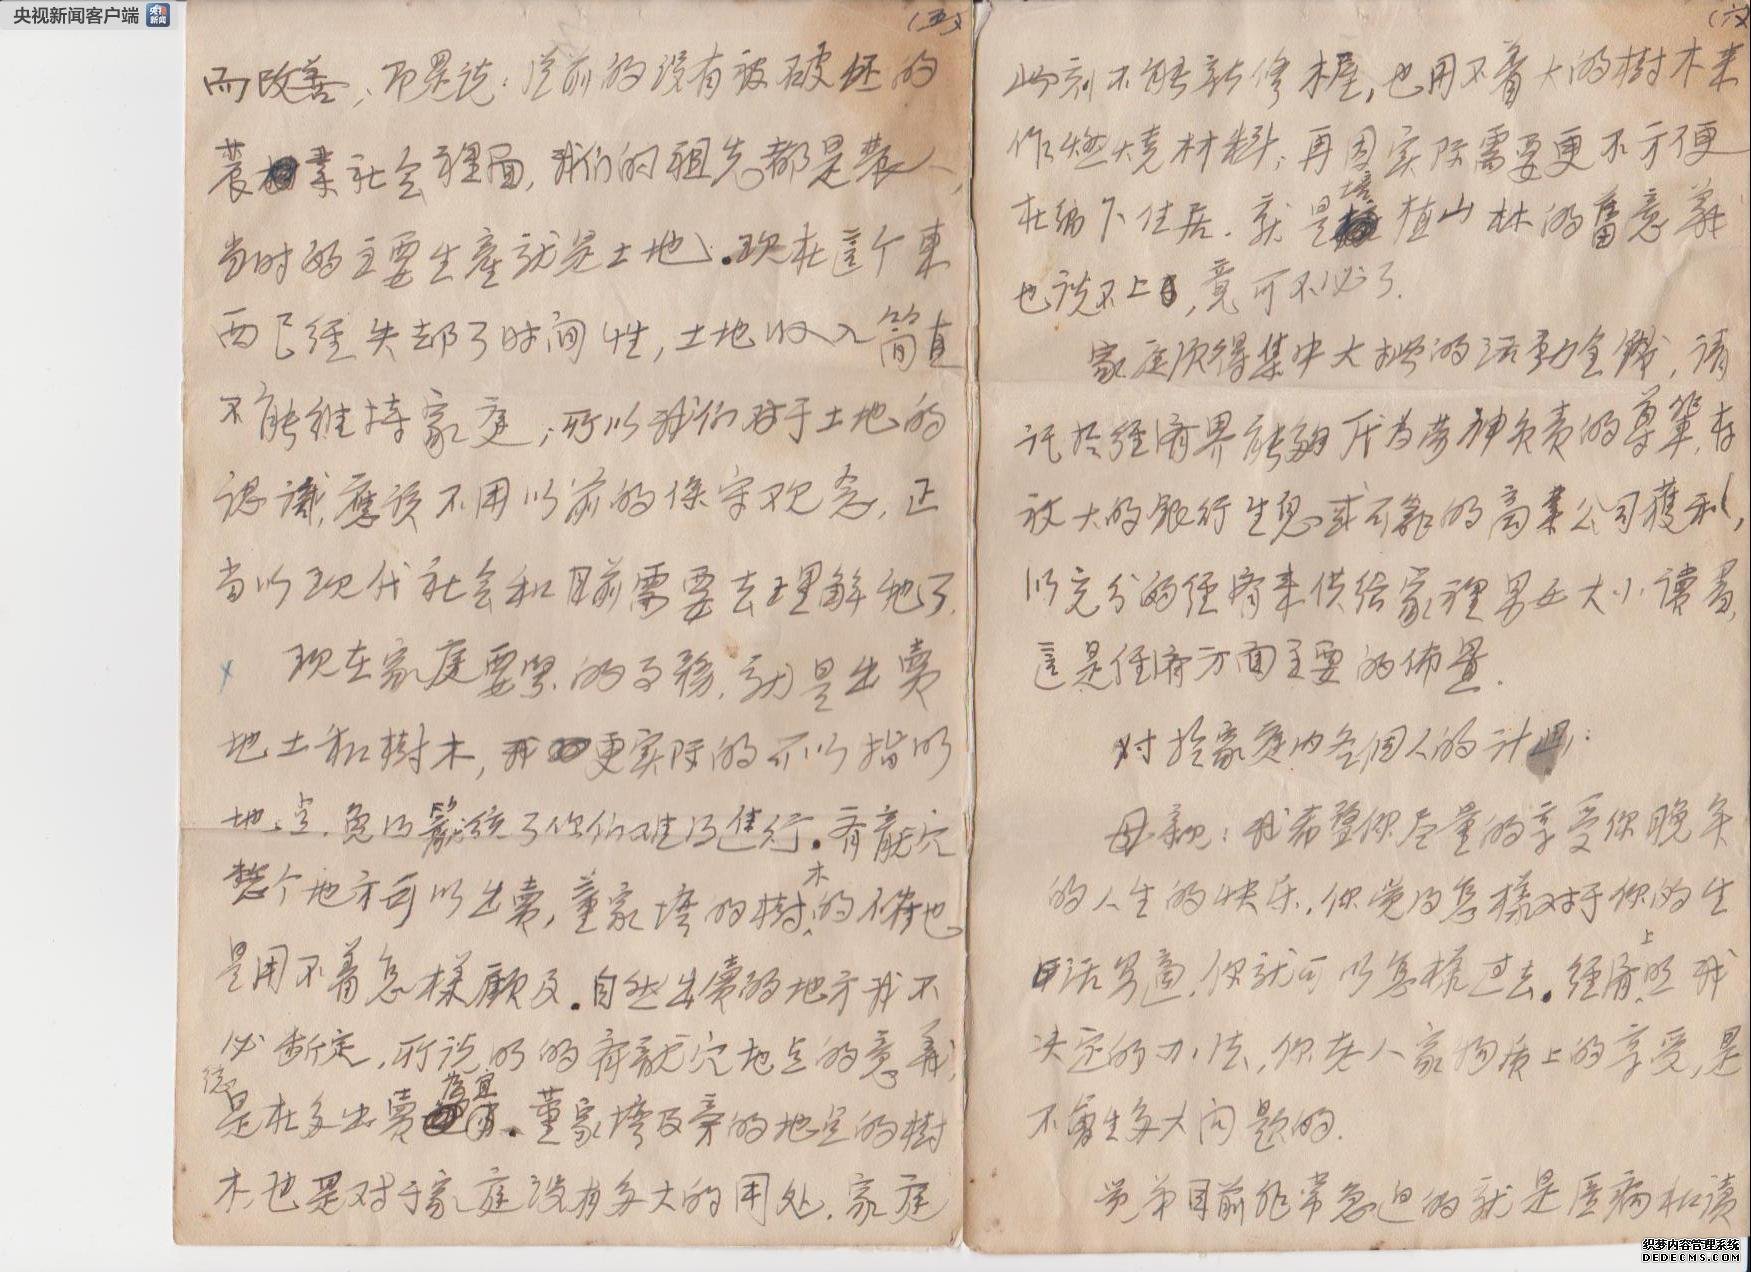 央视新闻客户端
央视新闻
(五)
而改善,即是说:从前的没有被破坏的
农业社会裡面,我们的祖先都是农人,
当时的主要生產就是土地。现在這个東
西已经失却了时间性,土地收入简直
不能维持家庭,所以我们对于土地的
認識,應该不用以前的保守观念,正
当以现代社会和目前需要去理解牠了.
现在家庭要緊的事務,就是出賣
地土和樹木,我更实际的可以指明
地点.免得 你们难得進行.有龍穴
整个地方可以出賣,董家塆的樹木的 也
是用不着怎樣顧及.自然出賣的地方我不
必断定,所说明的有龍穴地点的意義,
總是在多出賣為宜.董家塆及旁的地点的樹
木也是对于家庭没有多大的用处.家庭
(六)
此刻不能新修木屋,也用不着大的樹木来
作燃烧材料;再因实际需要更不方便
在鄉下住居.就是培植山林的舊意義
也谈不上,竟可不必了.
家庭须得集中大 的活动金錢,请
託於经济界能夠代为劳神负责的尊辈,存
放大的银行生息或可靠的商業公司獲利,
以充分的经济来供给家裡男女大小讀書,
這是经济方面主要的佈置.
对於家庭内各個人的计畫:
母親:我希望你尽量的享受你晚年
的人生的快乐.你觉得怎樣对于你的生
活舒適,你就可以怎樣过去.经济上照我
决定的办法,你老人家物质上的享受,是
不會生多大问题的.
兄弟目前非常急迫的就是医病和讀
织梦内容管理系统
DEDECMS.COM